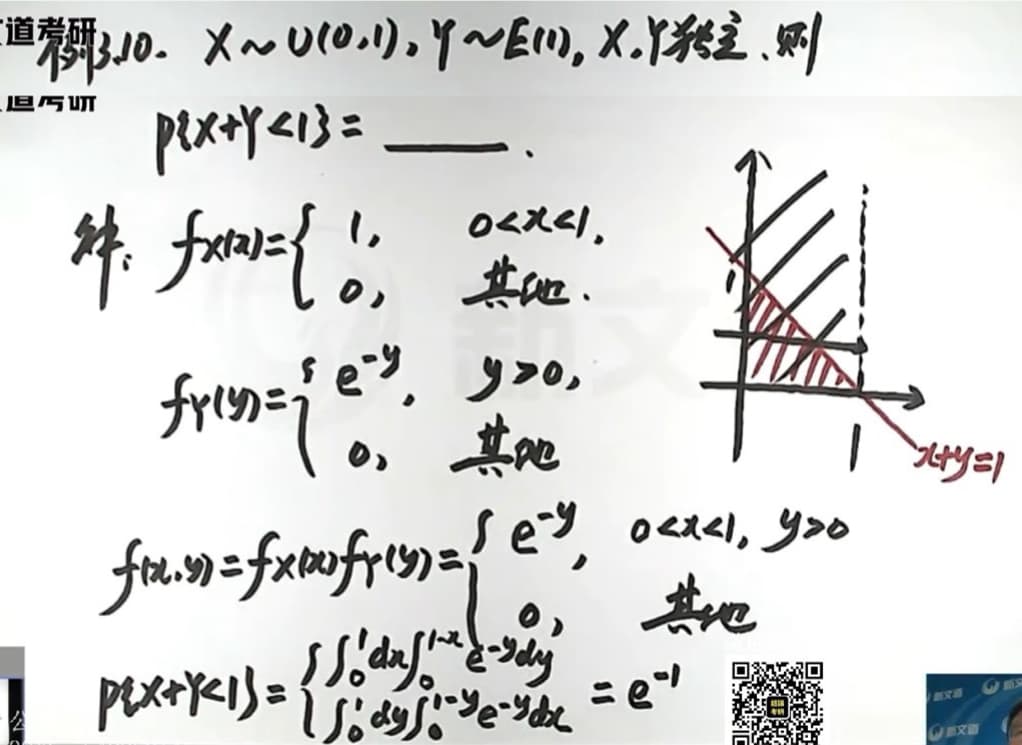 道考研
例3.10. X~U(0,1), Y~E(1), X,Y独立,则
道考研
P{X+Y<1}= ______.
解: fX(x)={ 1, 0<x<1,
0, 其他.
fY(y)={ e^-y, y>0,
0, 其他
f(x,y)=fX(x)fY(y)={ e^-y, 0<x<1, y>0
0, 其他
P{X+Y<1}={ ∫₀¹dx∫₀^1-x e^-y dy
∫₀¹dy∫₀^1-y e^-y dx = e^-1
1
1
x+y=1
新文道
新文道